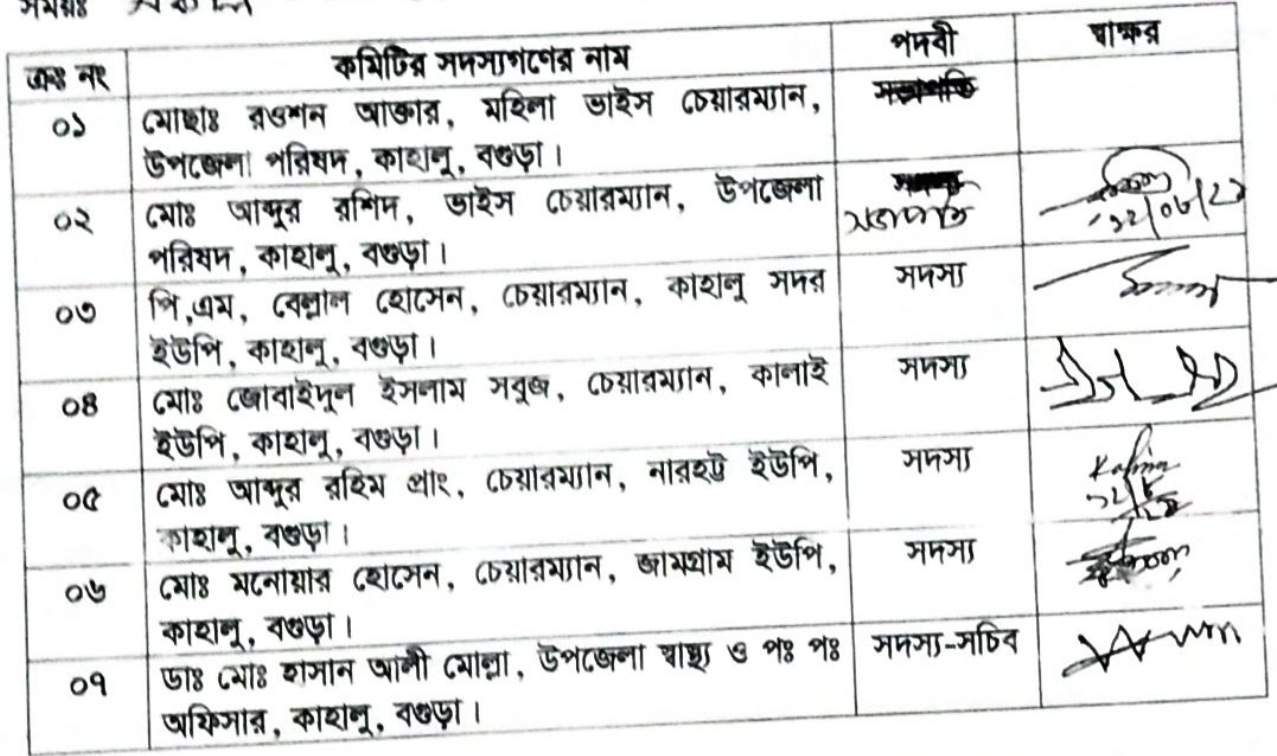 সময়ঃ
ক্রঃ নং কমিটির সদস্যগণের নাম পদবী স্বাক্ষর
০১ মোছাঃ রওশন আক্তার, মহিলা ভাইস চেয়ারম্যান, সভাপতি
উপজেলা পরিষদ, কাহালু, বগুড়া।
০২ মোঃ আব্দুর রশিদ, ভাইস চেয়ারম্যান, উপজেলা সদস্য
পরিষদ, কাহালু, বগুড়া। সভাপতি
০৩ পি,এম, বেল্লাল হোসেন, চেয়ারম্যান, কাহালু সদর সদস্য
ইউপি, কাহালু, বগুড়া।
০৪ মোঃ জোবাইদুল ইসলাম সবুজ, চেয়ারম্যান, কালাই সদস্য
ইউপি, কাহালু, বগুড়া।
০৫ মোঃ আব্দুর রহিম প্রাং, চেয়ারম্যান, নারহট্ট ইউপি, সদস্য
কাহালু, বগুড়া।
০৬ মোঃ মনোয়ার হোসেন, চেয়ারম্যান, জামগ্রাম ইউপি, সদস্য
কাহালু, বগুড়া।
০৭ ডাঃ মোঃ হাসান আলী মোল্লা, উপজেলা স্বাস্থ্য ও পঃ পঃ সদস্য-সচিব
অফিসার, কাহালু, বগুড়া।